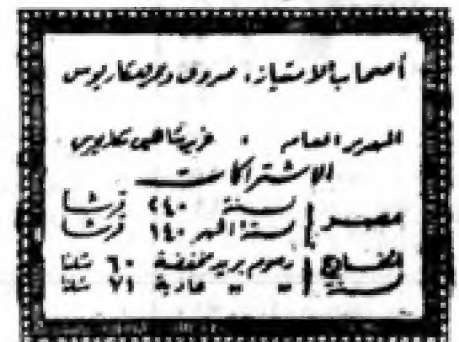 أصحاب الامتياز: صروف ونمر ومكاريوس
المدير العام : عزيز شاهين مكاريوس
الاشتراكات
مصر سنة ٢٤٠ قرشا
ستة أشهر ١٤٠ قرشا
الخارج رسوم بريد مخفضة ٦٠ شلنا
سنة " " عادية ٧١ شلنا